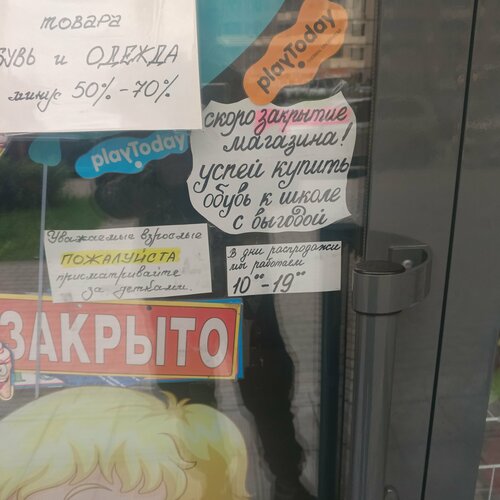 товара
ОБУВЬ и ОДЕЖДА
минус 50%-70%
playToday
playToday
скоро закрытие
магазина!
успей купить
обувь к школе
с выгодой
Уважаемые взрослые
ПОЖАЛУЙСТА
присматривайте
за детками.
В дни распродажи
мы работаем
10⁰⁰-19⁰⁰
ЗАКРЫТО